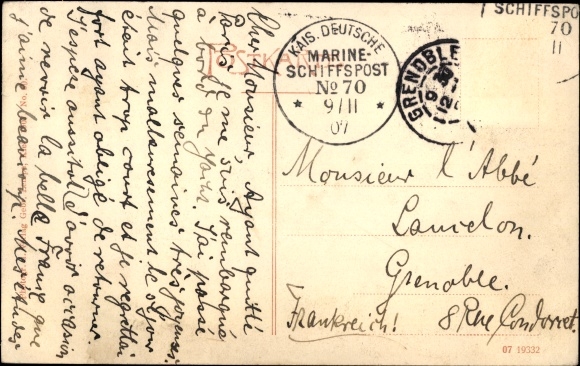 Cher Monsieur Ayant quitté
Paris je me suis rembarqué
à bord du York. J'ai passé
quelques semaines très joyeuses.
Mais malheureusement le séjour
était trop court et je regrettai
fort ayant obligé de retourner.
J'espère aussitôt d'avoir occasion
de revoir la belle France que
j'aime beaucoup.
POSTKARTE
KAIS. DEUTSCHE
MARINE-
SCHIFFSPOST
No 70
* 9/11 *
07
GRENOBLE
SCHIFFSPO
70
11
Monsieur l'Abbé
Grenoble.
Frankreich! 8 Rue Condorcet.
07 19332